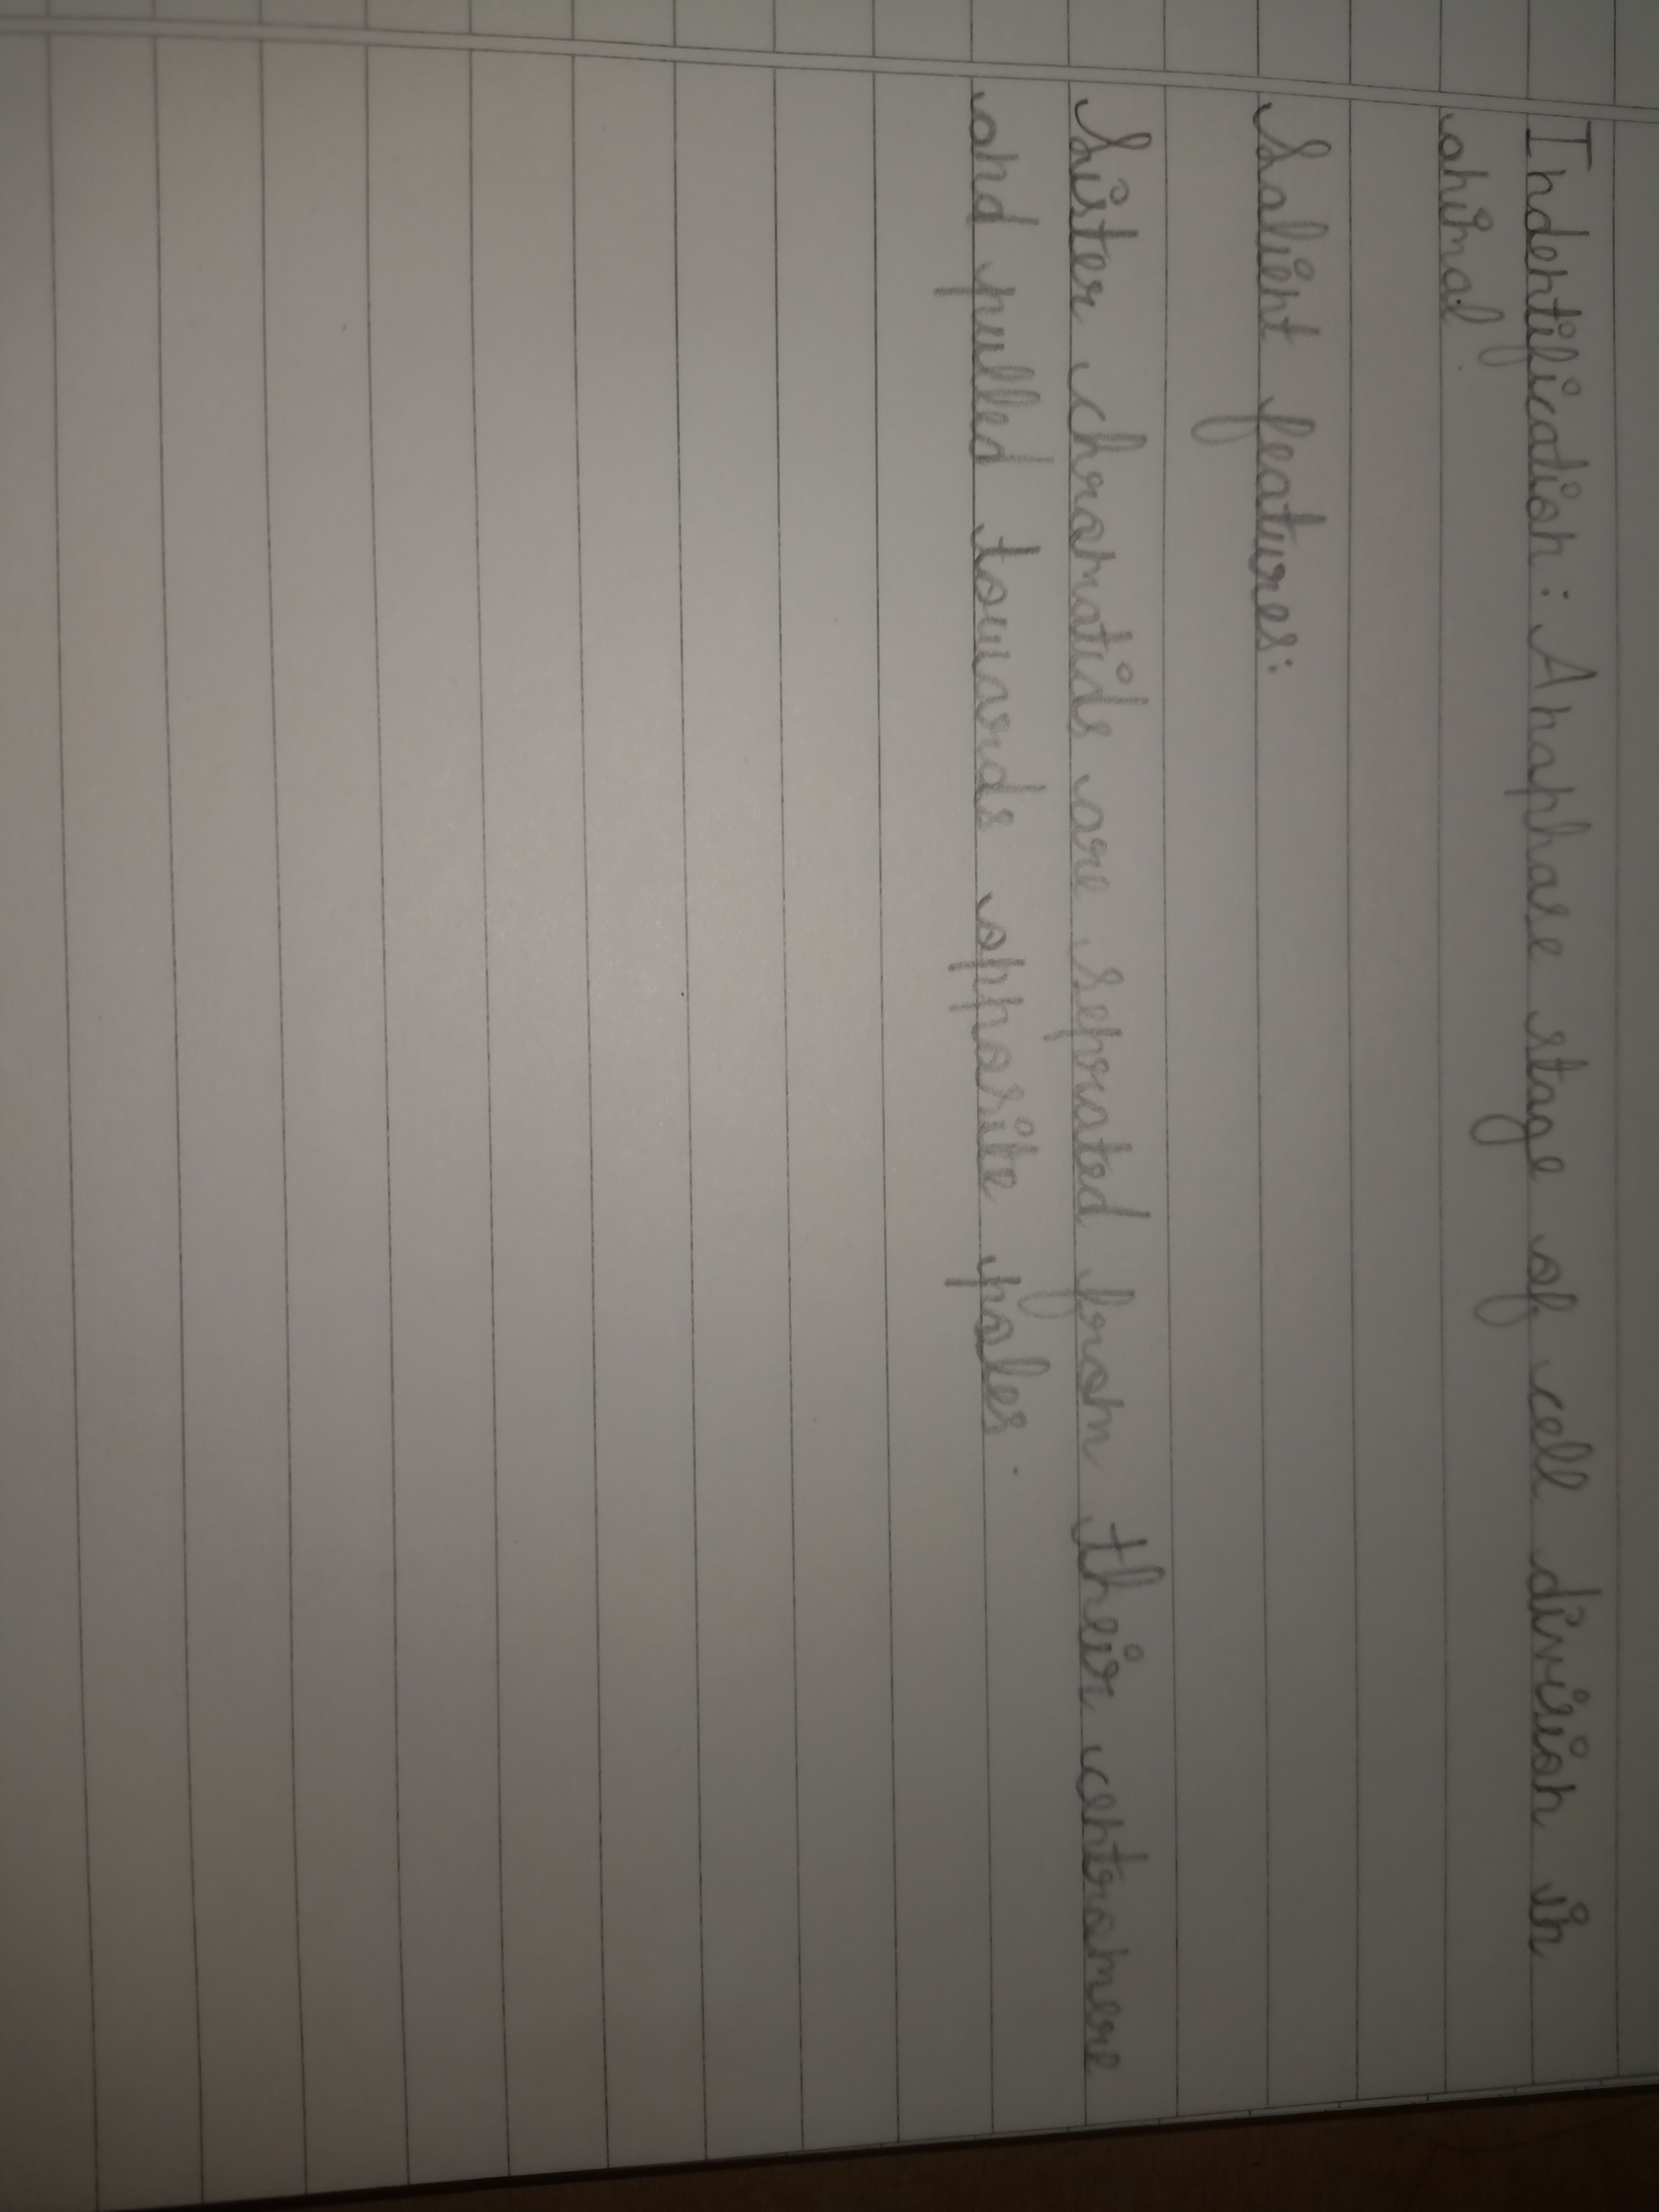 Indentification: Anaphase stage of cell division in
animal.
Salient features:
Sister chromatids are seperated from their centromere
and pulled towards opposite poles.